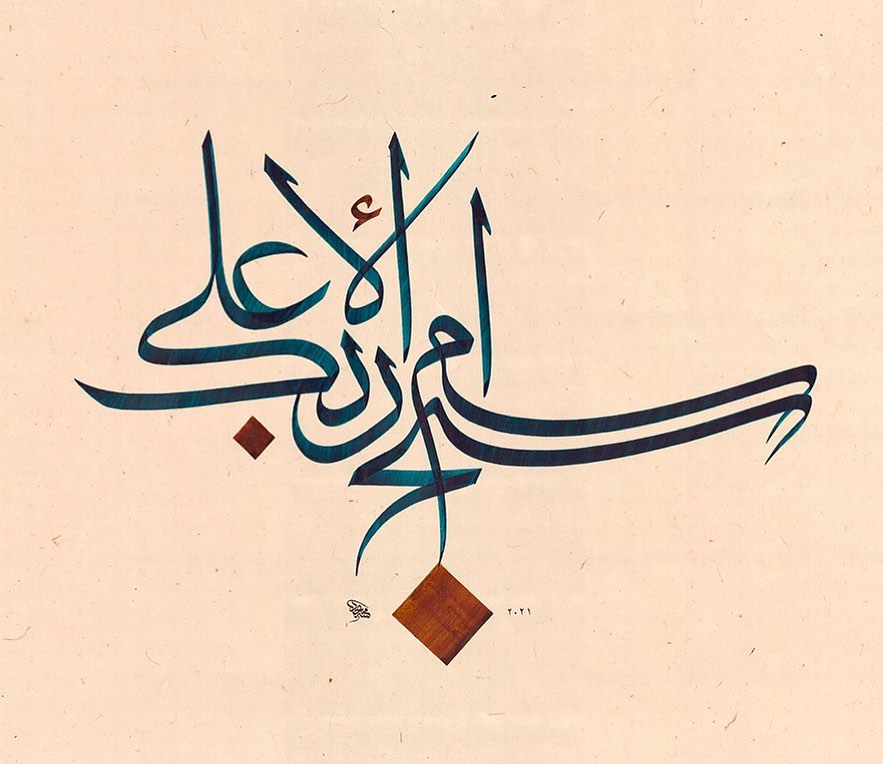 سبح اسم ربك الأعلى
٢٠٢١